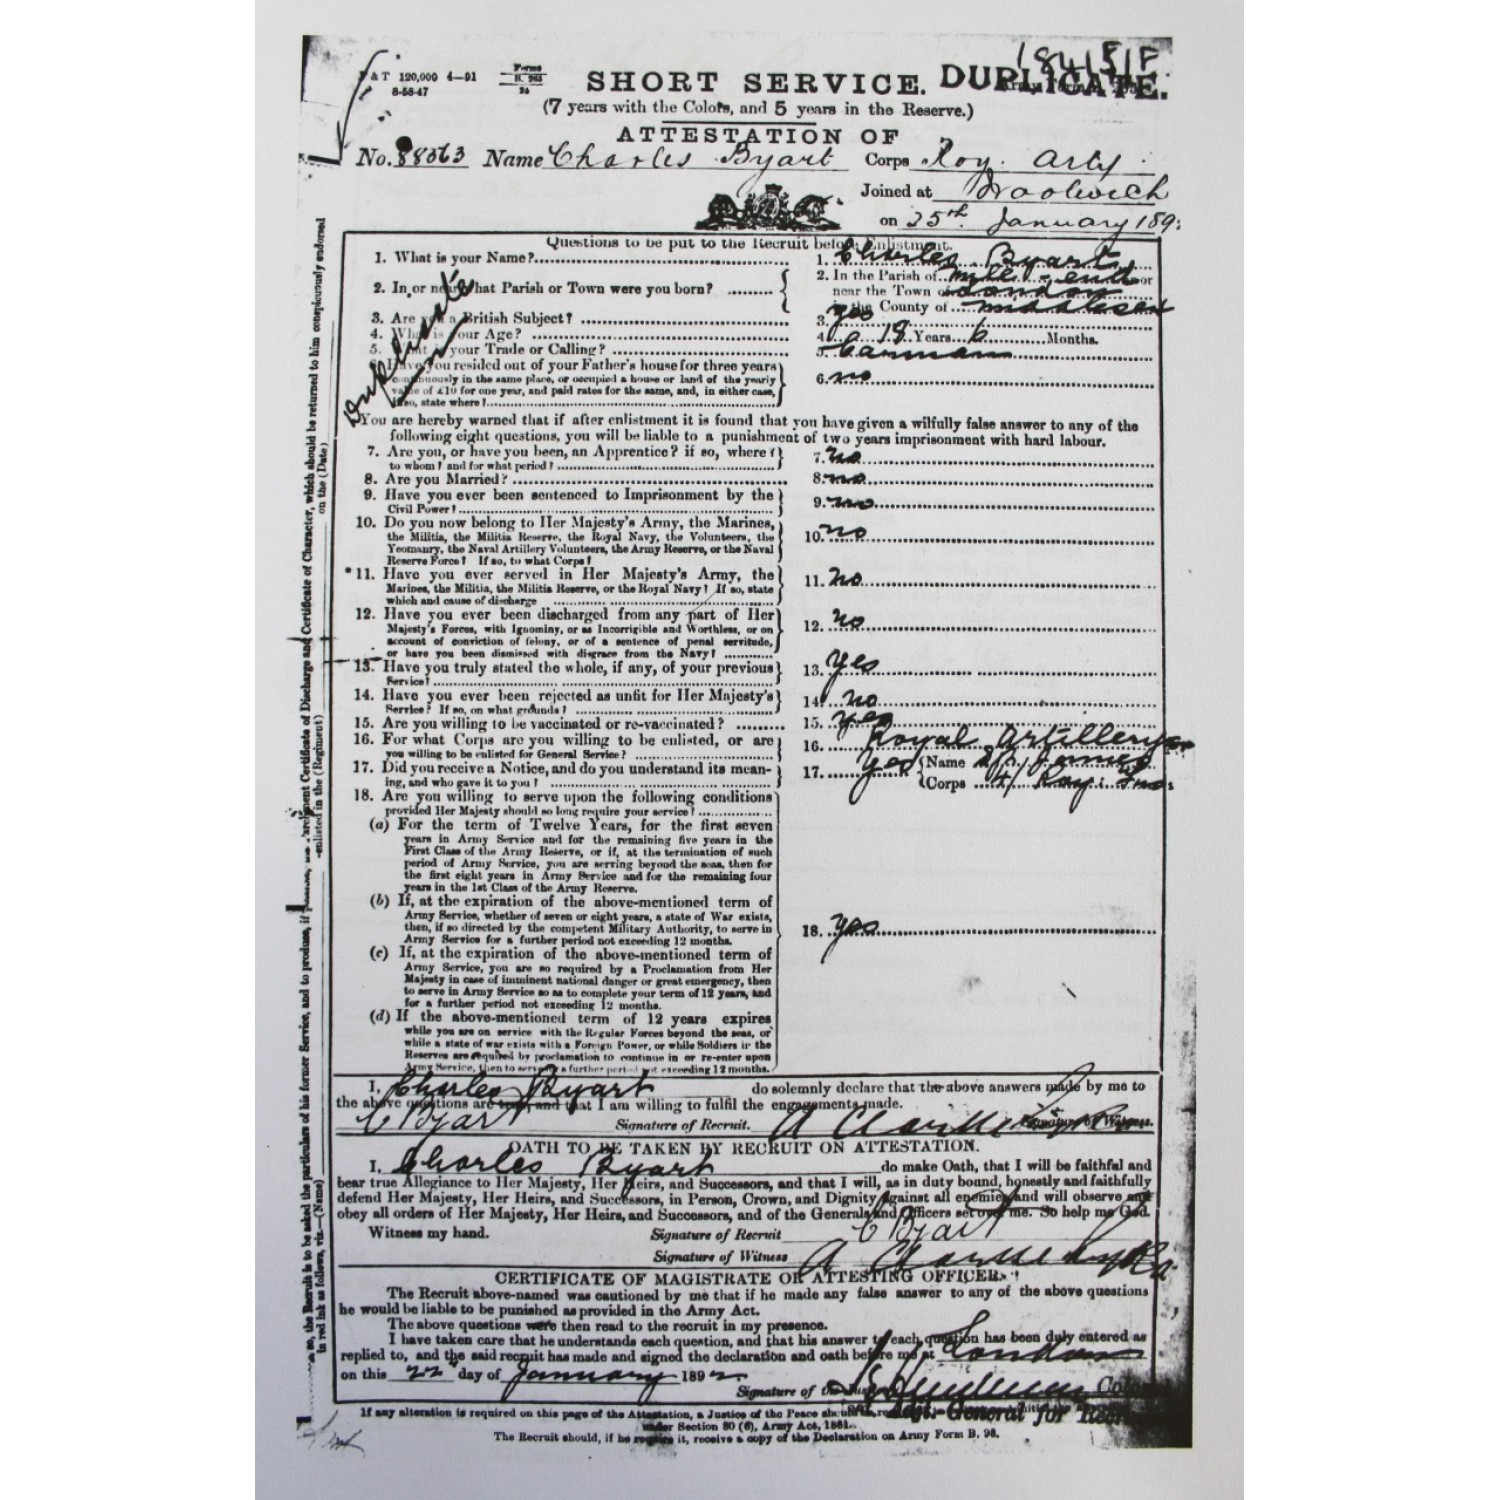 & T 120,000 4—91
8-58-47
Forms
B. 265
24
SHORT SERVICE. DUPLICATE.
18415/F
(7 years with the Colors, and 5 years in the Reserve.)
ATTESTATION OF
No. 88563 Name Charles Byart Corps Roy. Arty.
Joined at Woolwich
on 25th January 189
Questions to be put to the Recruit before Enlistment.
1. What is your Name? 1. Charles Byart
2. In or near what Parish or Town were you born? 2. In the Parish of Mile-end or
near the Town of London
in the County of Middlesex
3. Are you a British Subject? 3. Yes
4. What is your Age? 4. 18 Years 6 Months.
5. What is your Trade or Calling? 5. Carman
Duplicate
6. Have you resided out of your Father's house for three years
continuously in the same place, or occupied a house or land of the yearly
value of £10 for one year, and paid rates for the same, and, in either case,
if so, state where? 6. no
You are hereby warned that if after enlistment it is found that you have given a wilfully false answer to any of the
following eight questions, you will be liable to a punishment of two years imprisonment with hard labour.
7. Are you, or have you been, an Apprentice? if so, where?
to whom? and for what period? 7. no
8. Are you Married? 8. no
9. Have you ever been sentenced to Imprisonment by the
Civil Power? 9. no
10. Do you now belong to Her Majesty's Army, the Marines,
the Militia, the Militia Reserve, the Royal Navy, the Volunteers, the
Yeomanry, the Naval Artillery Volunteers, the Army Reserve, or the Naval
Reserve Force? If so, to what Corps? 10. no
*11. Have you ever served in Her Majesty's Army, the
Marines, the Militia, the Militia Reserve, or the Royal Navy? If so, state
which and cause of discharge 11. no
12. Have you ever been discharged from any part of Her
Majesty's Forces, with Ignominy, or as Incorrigible and Worthless, or on
account of conviction of felony, or of a sentence of penal servitude,
or have you been dismissed with disgrace from the Navy? 12. no
13. Have you truly stated the whole, if any, of your previous
Service? 13. Yes
14. Have you ever been rejected as unfit for Her Majesty's
Service? If so, on what grounds? 14. no
15. Are you willing to be vaccinated or re-vaccinated? 15. Yes
16. For what Corps are you willing to be enlisted, or are
you willing to be enlisted for General Service? 16. Royal Artillery
17. Did you receive a Notice, and do you understand its mean-
ing, and who gave it to you? 17. Yes Name James
Corps 4/ Roy.
18. Are you willing to serve upon the following conditions
provided Her Majesty should so long require your service?
(a) For the term of Twelve Years, for the first seven
years in Army Service and for the remaining five years in the
First Class of the Army Reserve, or if, at the termination of such
period of Army Service, you are serving beyond the seas, then for
the first eight years in Army Service and for the remaining four
years in the 1st Class of the Army Reserve.
(b) If, at the expiration of the above-mentioned term of
Army Service, whether of seven or eight years, a state of War exists,
then, if so directed by the competent Military Authority, to serve in
Army Service for a further period not exceeding 12 months.
18. Yes
(c) If, at the expiration of the above-mentioned term of
Army Service, you are so required by a Proclamation from Her
Majesty in case of imminent national danger or great emergency, then
to serve in Army Service so as to complete your term of 12 years, and
for a further period not exceeding 12 months.
(d) If the above-mentioned term of 12 years expires
while you are on service with the Regular Forces beyond the seas, or
while a state of war exists with a Foreign Power, or while Soldiers in the
Reserves are required by proclamation to continue in or re-enter upon
Army Service, then to serve for a further period not exceeding 12 months.
I, Charles Byart do solemnly declare that the above answers made by me to
the above questions are true, and that I am willing to fulfil the engagements made.
C Byart Signature of Recruit. Signature of Witness.
OATH TO BE TAKEN BY RECRUIT ON ATTESTATION.
I, Charles Byart do make Oath, that I will be faithful and
bear true Allegiance to Her Majesty, Her Heirs, and Successors, and that I will, as in duty bound, honestly and faithfully
defend Her Majesty, Her Heirs, and Successors, in Person, Crown, and Dignity against all enemies, and will observe and
obey all orders of Her Majesty, Her Heirs, and Successors, and of the Generals and Officers set over me. So help me God.
Witness my hand. Signature of Recruit C Byart
Signature of Witness
CERTIFICATE OF MAGISTRATE OR ATTESTING OFFICER.
The Recruit above-named was cautioned by me that if he made any false answer to any of the above questions
he would be liable to be punished as provided in the Army Act.
The above questions were then read to the recruit in my presence.
I have taken care that he understands each question, and that his answer to each question has been duly entered as
replied to, and the said recruit has made and signed the declaration and oath before me at London
on this 22 day of January 1892
Signature of the Justice
General for
If any alteration is required on this page of the Attestation, a Justice of the Peace should
under Section 80 (6), Army Act, 1881.
The Recruit should, if he require it, receive a copy of the Declaration on Army Form B. 98.
so, the Recruit is to be asked the particulars of his former Service, and to produce, if Parchment Certificate of Discharge and Certificate of Character, which should be returned to him conspicuously endorsed
in red ink as follows, viz.—(Name) enlisted in the (Regiment) on the (Date)